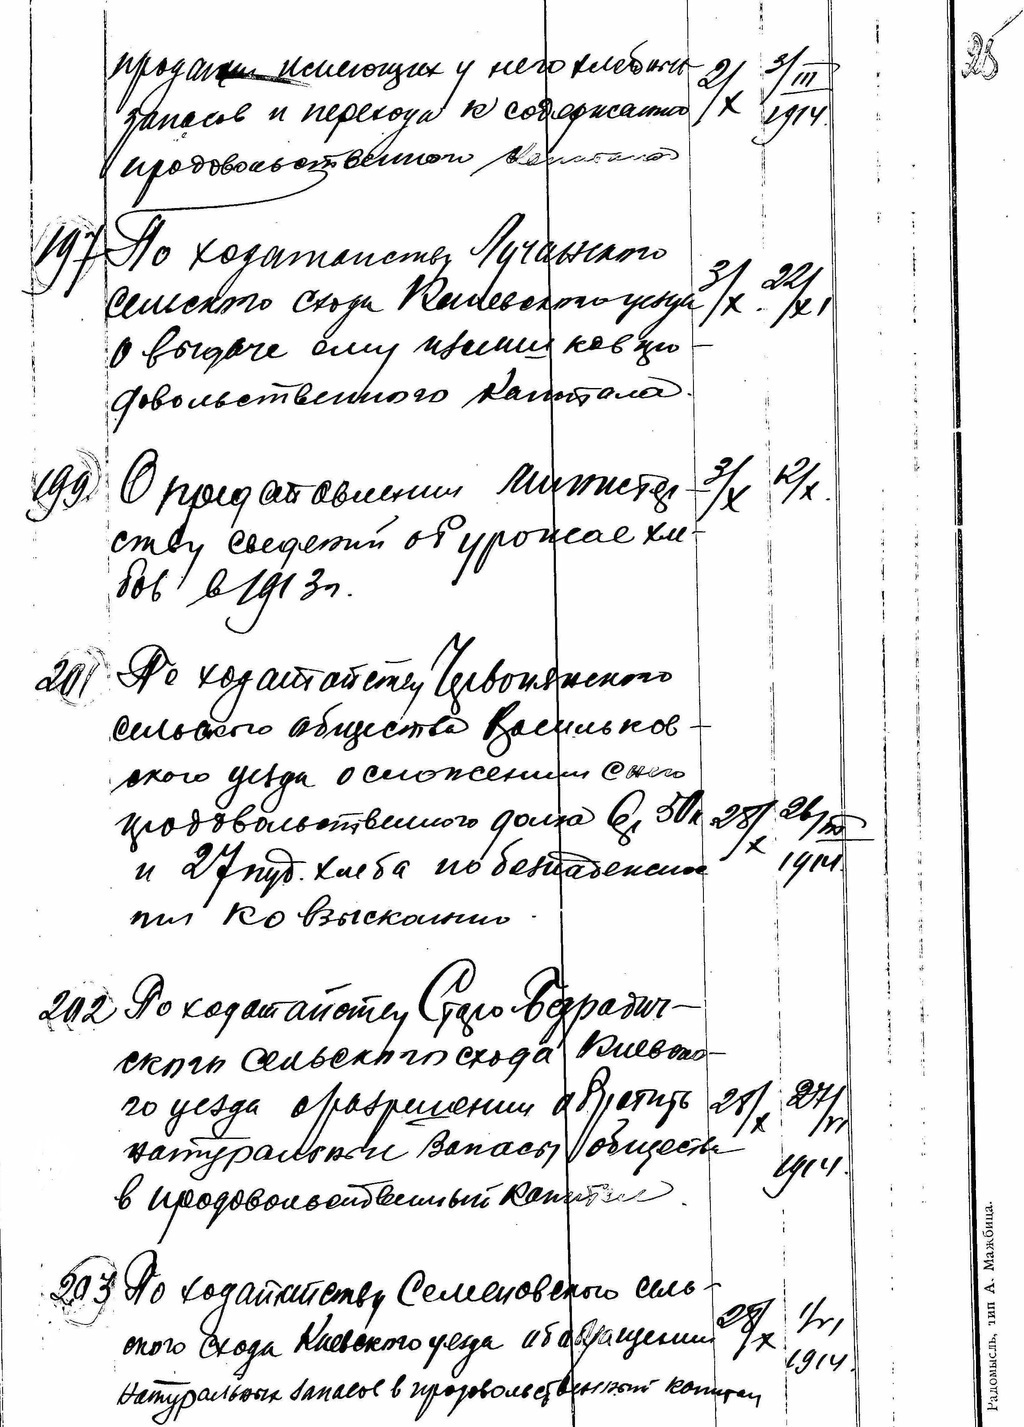 25
продажи имеющихся у него хлебных 2/X 3/III
запасов и перехода к содержанию 1914.
продовольственного капитала
197 По ходатайству Лучанского
сельского схода Киевского уезда 3/X. 22/XI
о выдаче ему излишков про-
довольственного капитала.
199 О представлении Министер- 3/X 12/X.
ству сведений об урожае хле-
бов в 1913 г.
201 По ходатайству Червонянского
сельского общества Васильков-
ского уезда о сложении с него
продовольственного долга 6 р. 50 к 28/X 26/III
и 27 пуд. хлеба по безнадежнос- 1914.
ти ко взысканию.
202 По ходатайству Старо Безрадич-
ского сельского схода Киевско-
го уезда о разрешении обратить 28/X 27/VI
натуральные запасы общества 1914.
в продовольственный капитал.
203 По ходатайству Семеновского сель-
ского схода Киевского уезда об обращении 28/X 1/VI
натуральных запасов в продовольственный капитал 1914.
Радомысль, тип А. Мажбица.